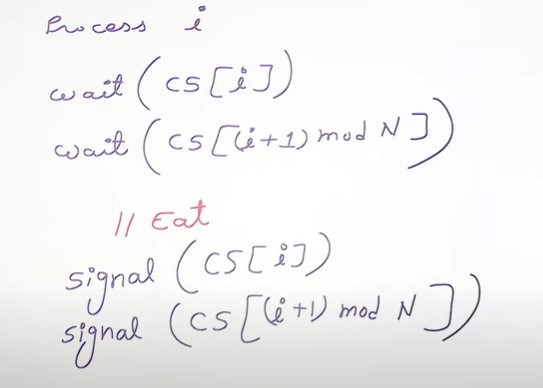 Process i
wait (CS[i])
wait (CS[(i+1) mod N])
// Eat
signal (CS[i])
signal (CS[(i+1) mod N])